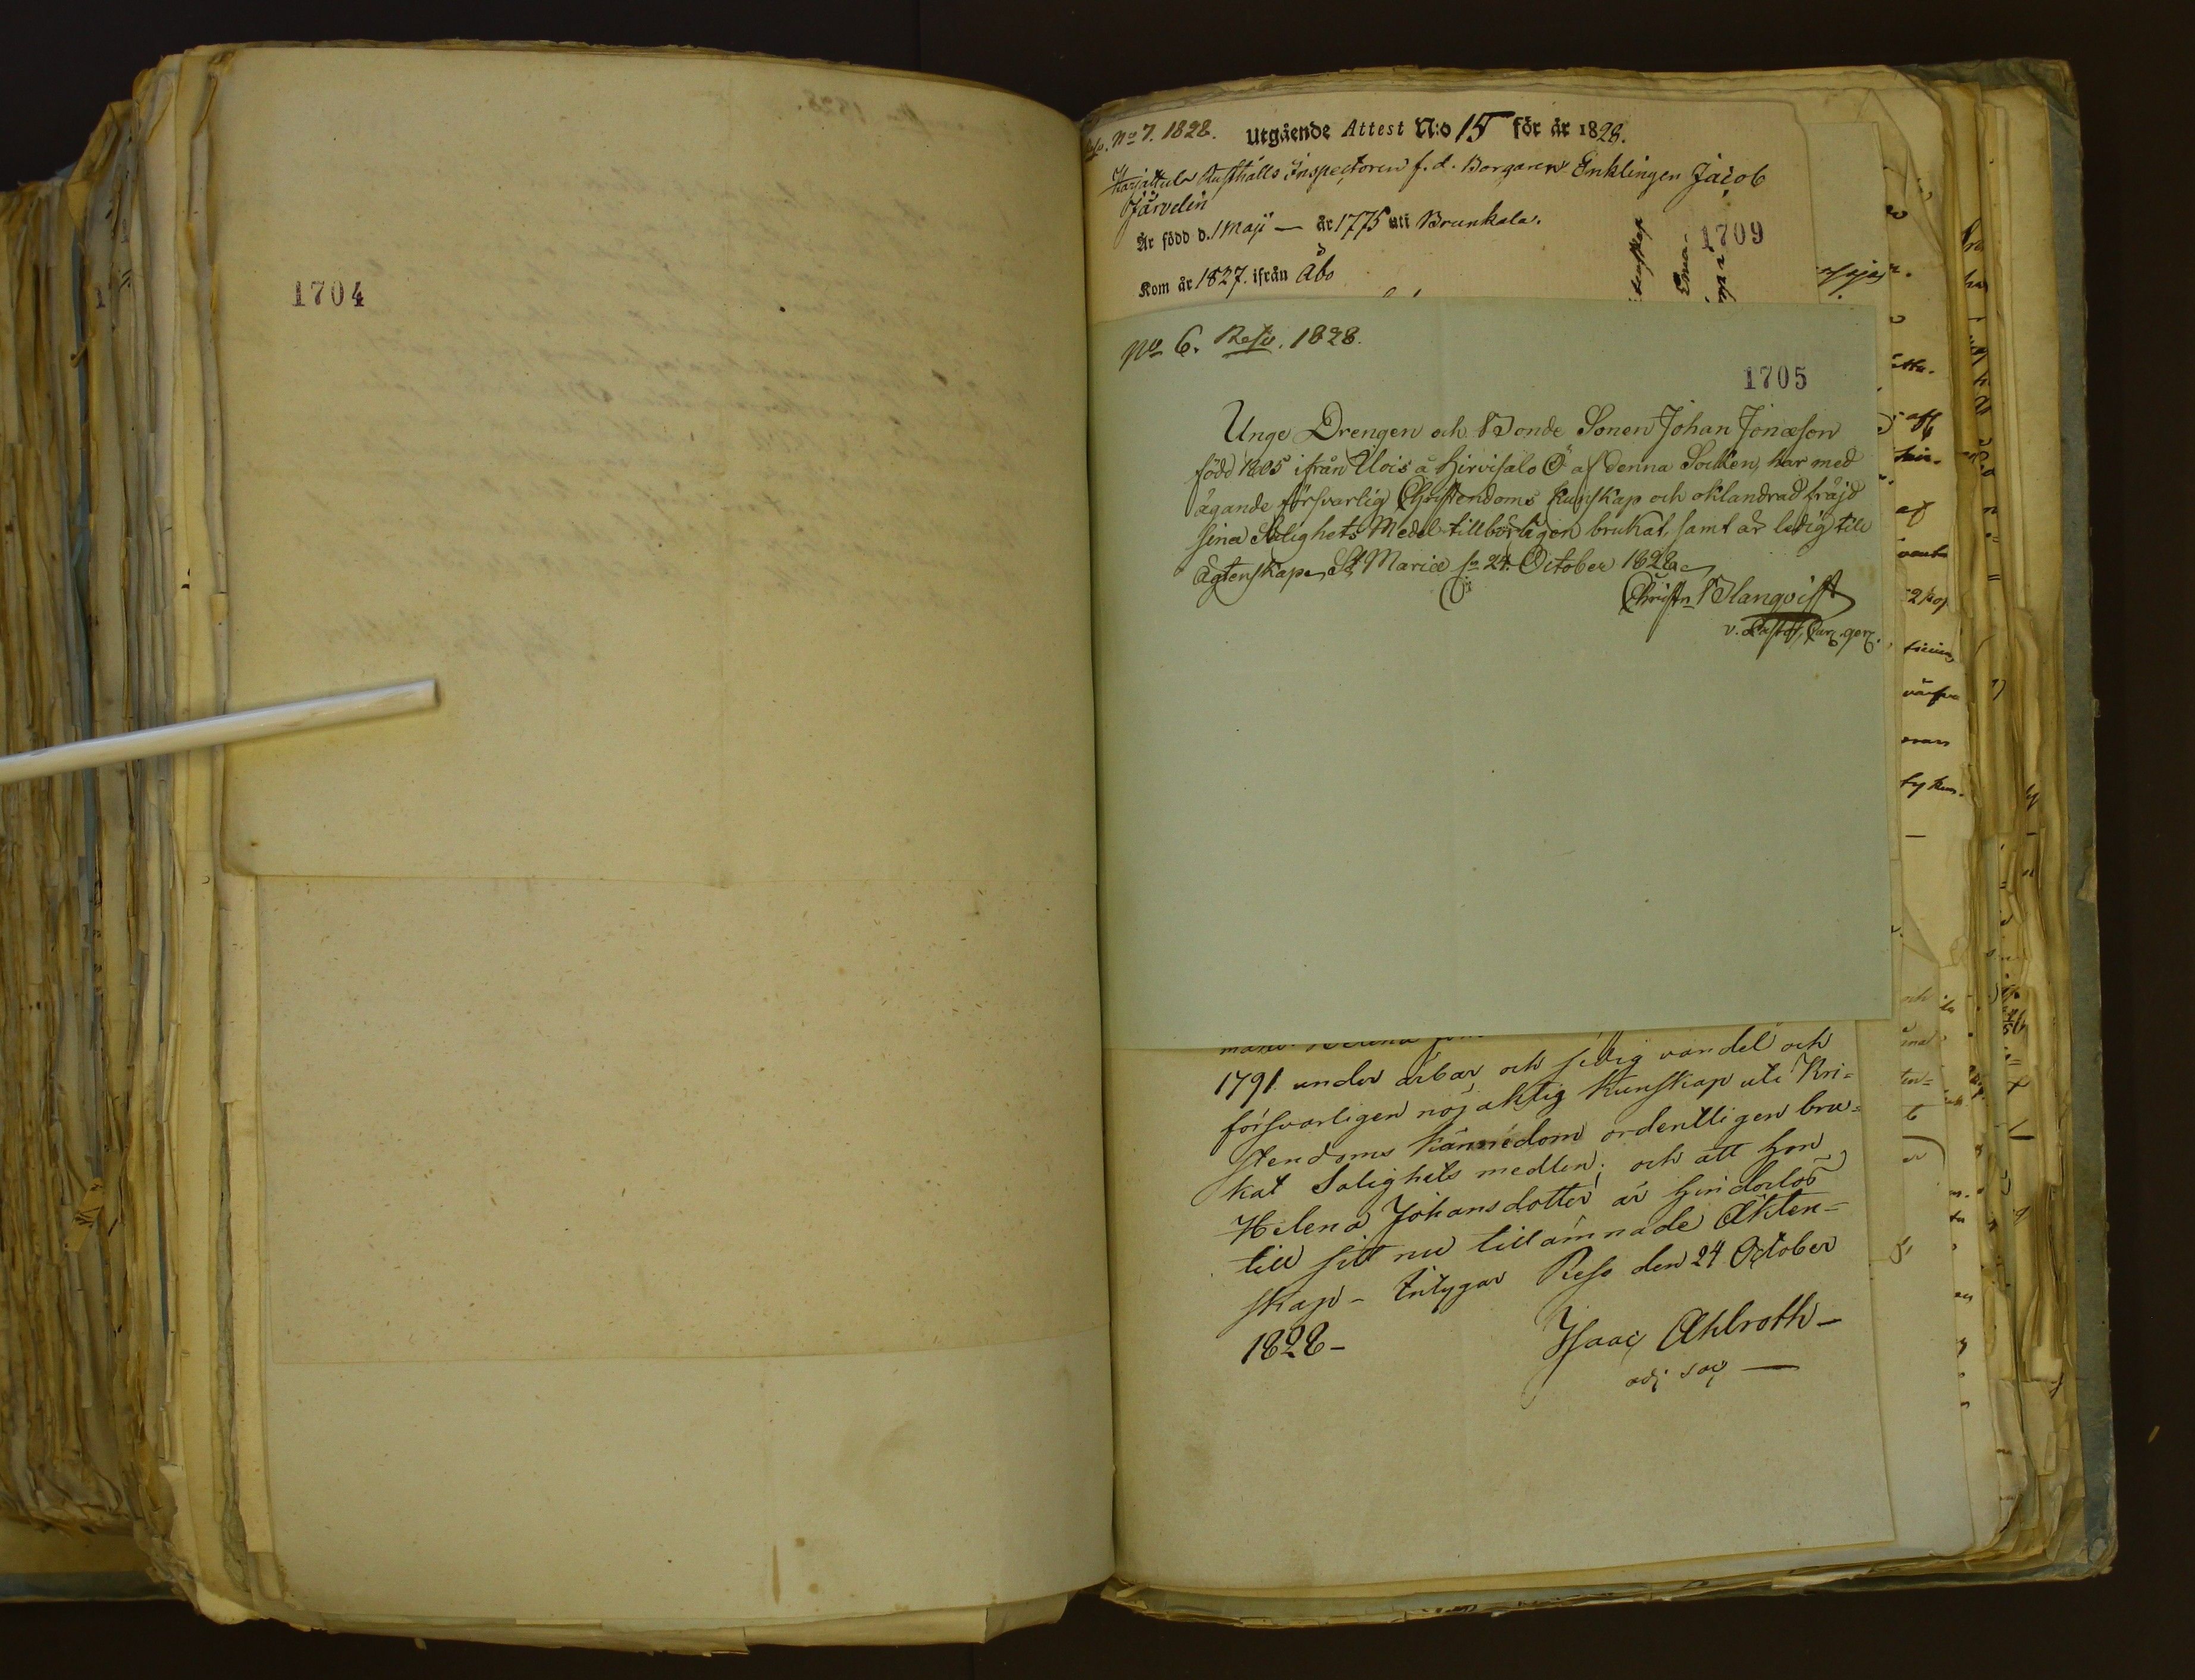 1704
No 7. 1828.
Utgående Attest N:o 15 för år 1828.
Karjattula Rusthålls Inspectoren f.d. Borgaren Enklingen Jacob
Järvelin
1709
Är född d. 1 Maji — år 1775 uti Brunkala.
Kom år 1827. ifrån Åbo
No 6. Reso. 1828.
1705
Unge Drengen och Bonde Sonen Johan Jonæson
född 1805 ifrån Uois å Hirvisalo Ö af denna Socken, har med
ägande försvarlig Christendoms Kunskap och oklandrad fräjd
sina Salighets Medel tillbörligen brukat, samt är ledig till
Ägtenskap, St Mariæ 24. October 1828
Christn Blanqvist
v. Pastor
1791. under ärbar och sedig vandel och
försvarligen nöjaktig Kunskap uti Kri=
stendoms kännedom ordentligen bru=
kat Salighets medlen; och att hon
Helena Johansdotter är hinderlös
till sitt nu tillämnade Äkten=
skap – Intygar Reso den 24 October
1828 –
Isaac Ahlroth –
adj sac —